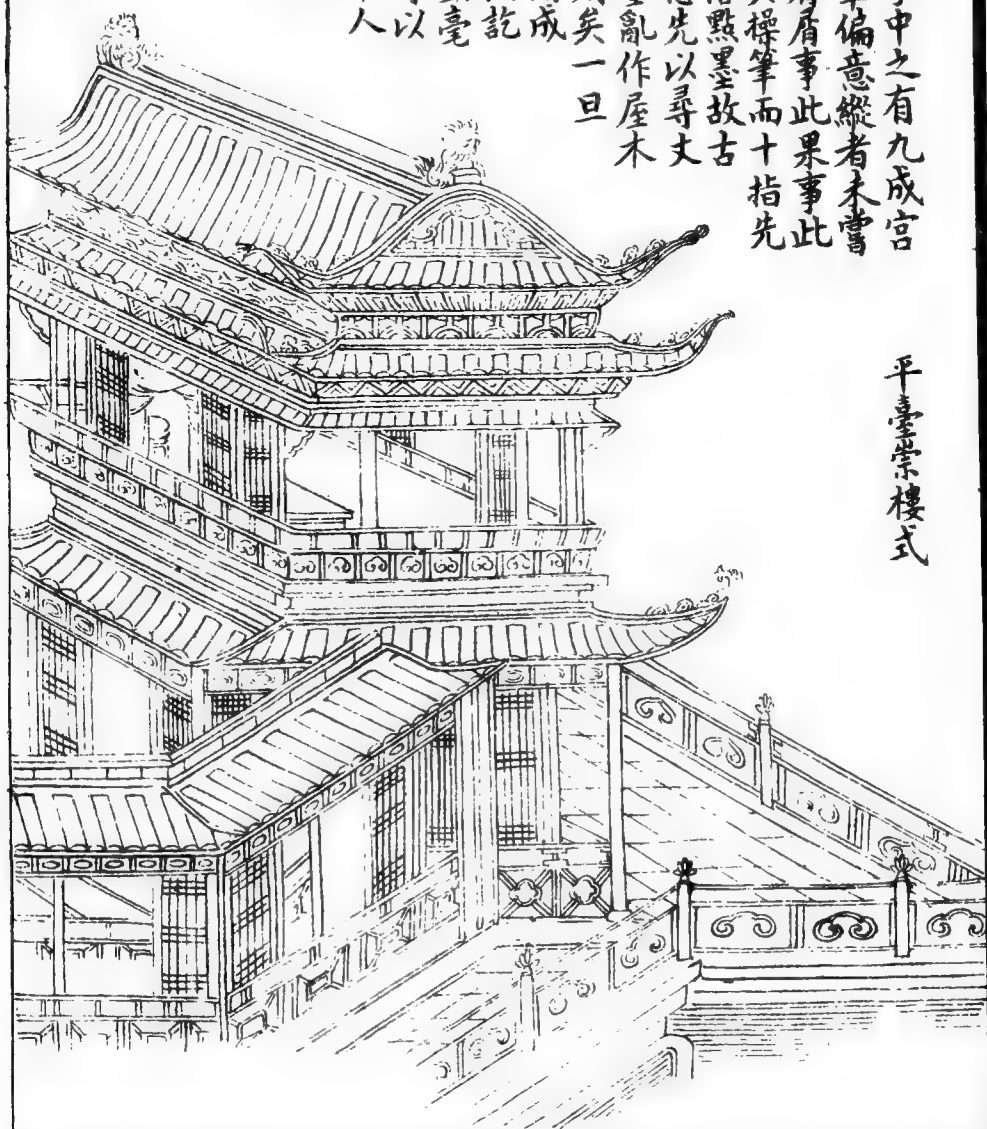 中之有九成宮
偏意縱者未嘗
屑事此果事此
操筆而十指先
點墨故古
先以尋丈
亂作屋木
矣一旦
成
訖
毫
以
人
平臺崇樓式